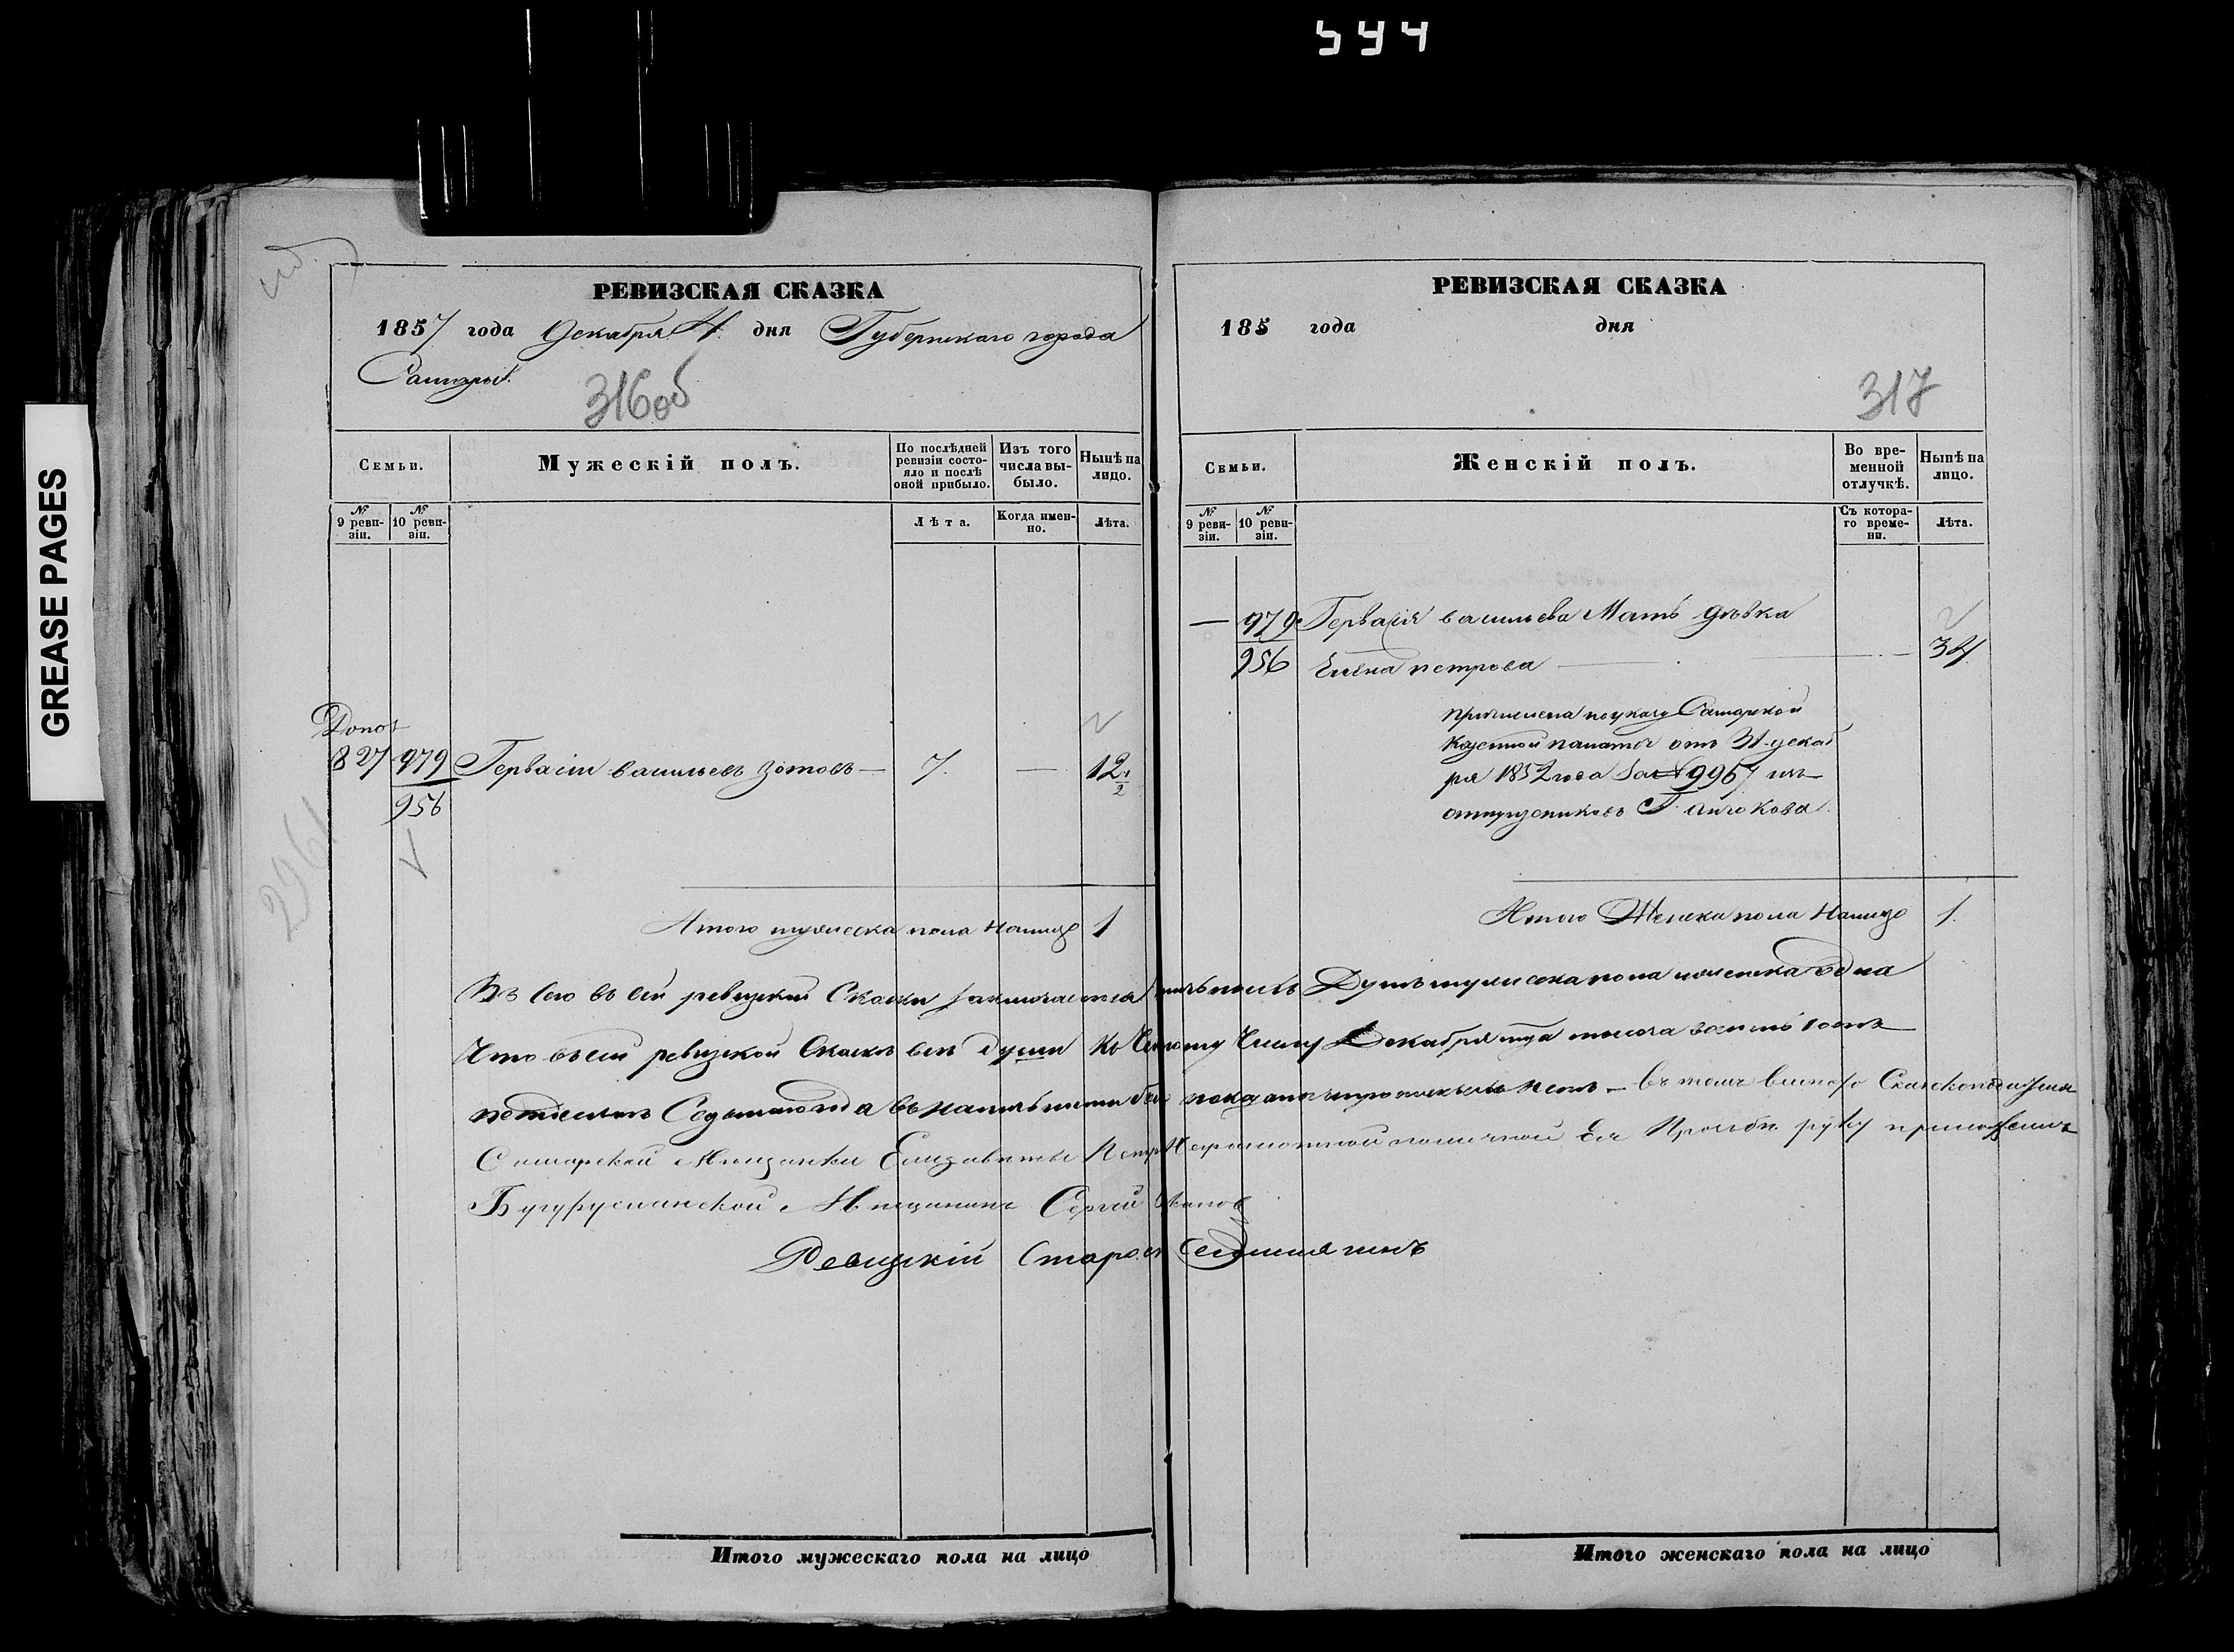 544
GREASE PAGES
РЕВИЗСКАЯ СКАЗКА
1857 года Декабря 4 дня Губернскаго города
Самары.
316об
Семьи.
Мужескій полъ.
По послѣдней ревизіи состояло и послѣ оной прибыло.
Изъ того числа выбыло.
Нынѣ на лицо.
№ 9 ревизіи.
№ 10 ревизіи.
Лѣта.
Когда именно.
Лѣта.
Допол
827 979 Гервасій васильевъ Зотовъ — 7. — 12 1/2
956
2961
Итого мужеска пола налицо 1
РЕВИЗСКАЯ СКАЗКА
185 года дня
317
Семьи.
Женскій полъ.
Во временной отлучкѣ.
Нынѣ на лицо.
№ 9 ревизіи.
№ 10 ревизіи.
Съ котораго времени.
Лѣта.
— 979 Гервасія васильева Мать дѣвка
956 Елена петрова — 34
причислена по указу Самарской
Казенной палаты отъ 31 декаб
ря 1852 года за № 9967 изъ
отпущенниковъ Г.
Итого Женска пола Налицо 1.
Въ сей ревизской Сказки заключается Душъ мужеска пола женска одна
Что въ сей ревизской Сказкѣ всѣ души Къ Числу Декабря тысяча восемь сотъ
Седьмаго года въ показаны и прописныхъ нетъ — въ томъ
Самарской Мещанки Елизаветы Неграмотной по личной Ея Прозьбѣ руку приложилъ
Бугурусланской Мещанинъ Сергей
Ревизкій Старо
Итого мужескаго пола на лицо
Итого женскаго пола на лицо